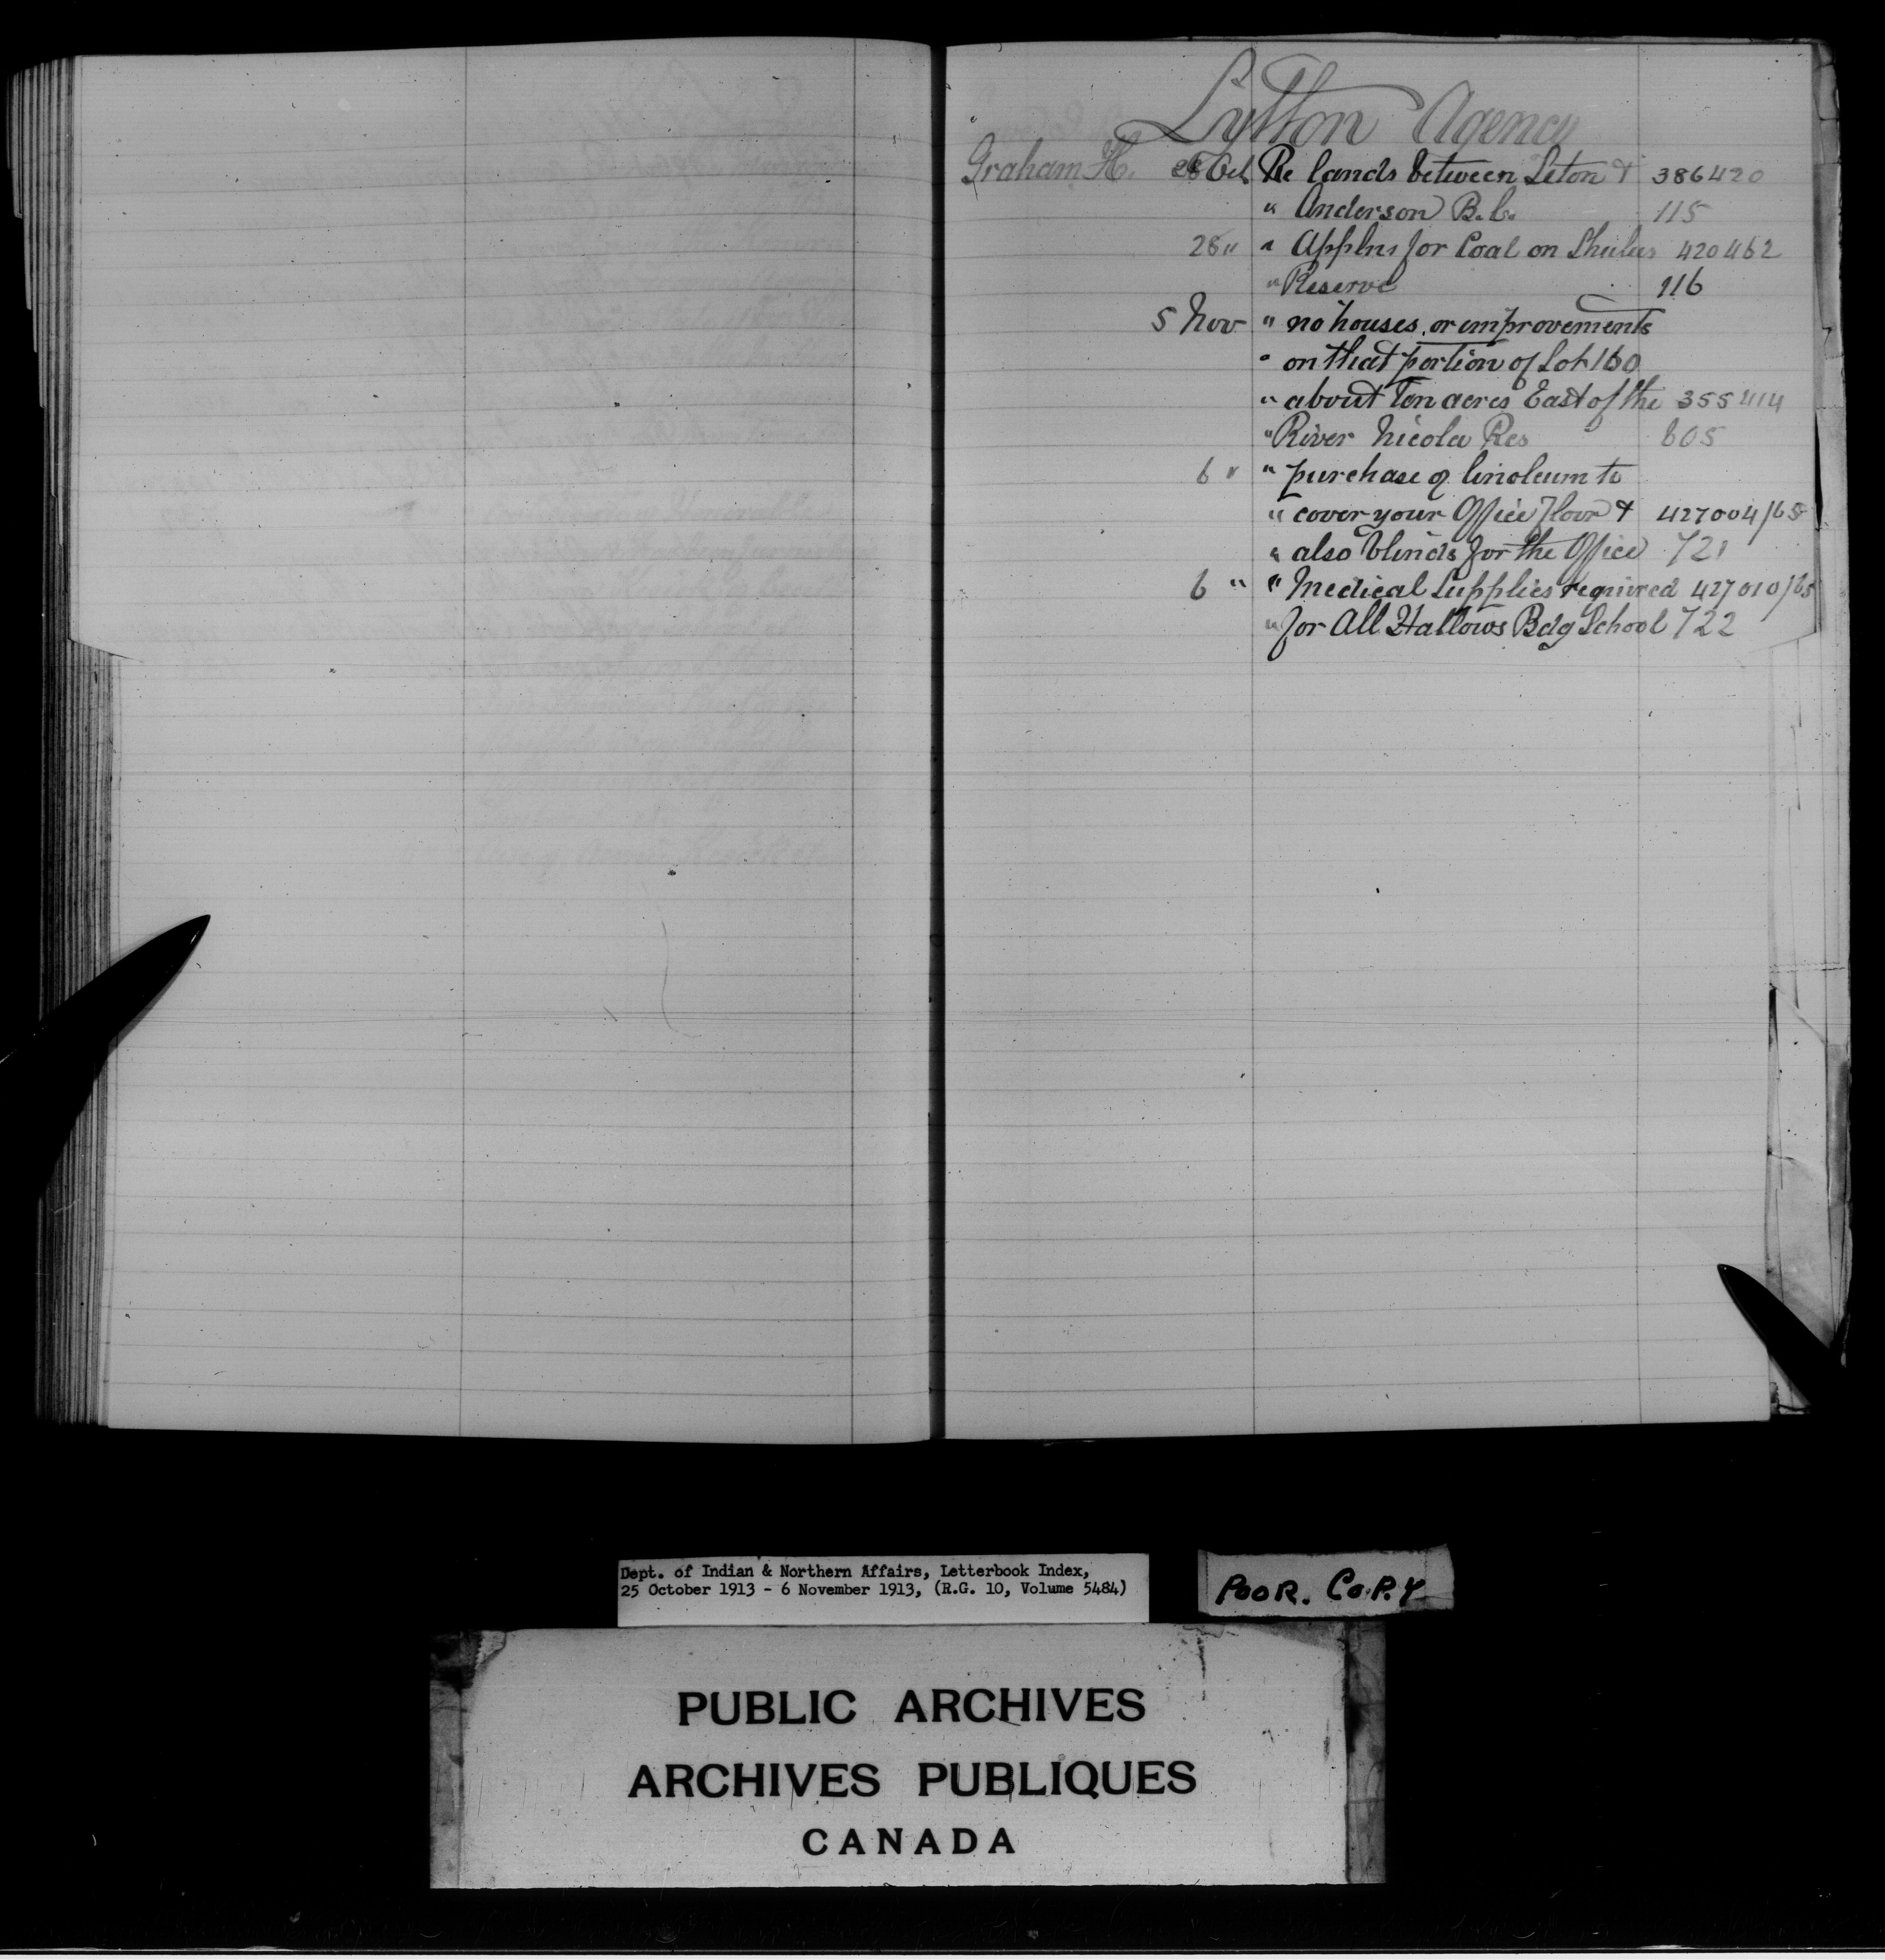 Lytton Agency
Graham H. 28 Oct Re lands between Seton & 386420
" Anderson B.C. 115
28 " " Applns for Coal on Shulus 420462
" Reserve 116
5 Nov " no houses or improvements
" on that portion of Lot 160
" about ten acres East of the 355414
" River Nicola Res 605
6 " " purchase of linoleum to
" cover your Office Floor & 427004/65
" also blinds for the Office 721
6 " " Medical Supplies required 427010/65
" for All Hallows Bdg School 722
Dept. of Indian & Northern Affairs, Letterbook Index,
25 October 1913 - 6 November 1913, (R.G. 10, Volume 5484)
POOR. COPY
PUBLIC ARCHIVES
ARCHIVES PUBLIQUES
CANADA